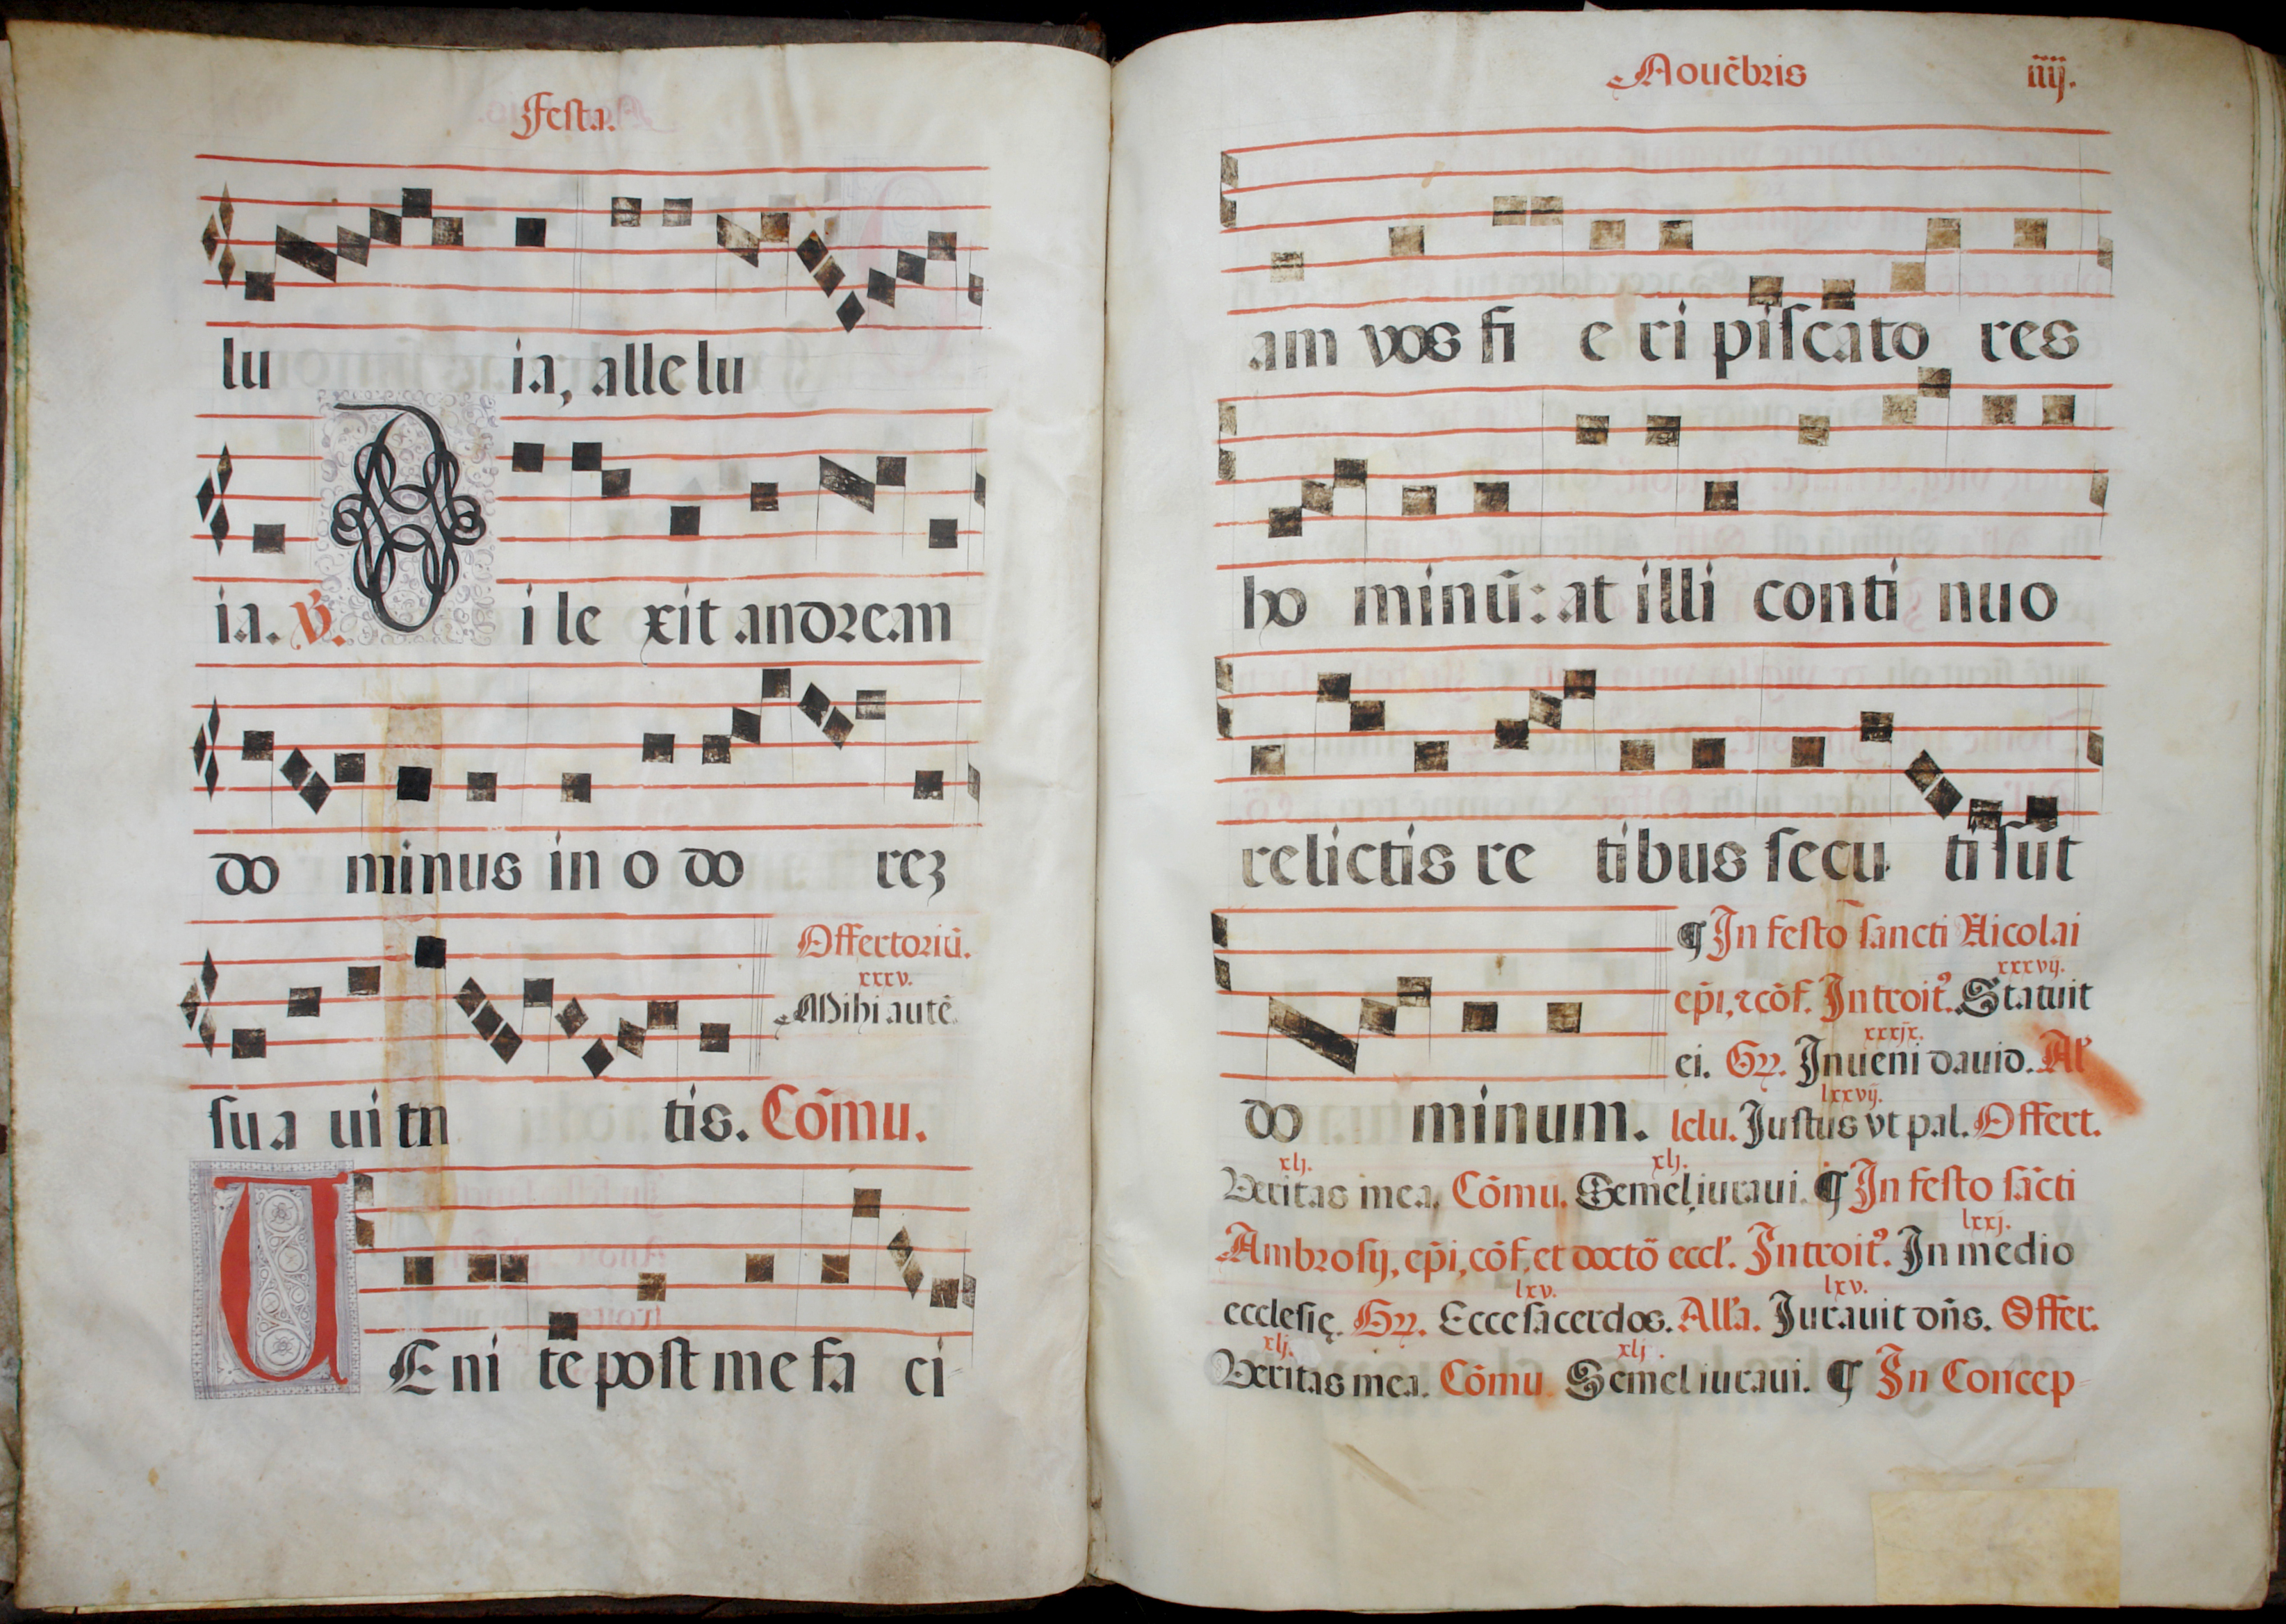 Festa.
lu ia, alle lu
ia. ℣. D i le xit andream
do minus in o do rez
Offertoriū.
xxxv.
Mihi autē
su a ui ta tis. Cōmu.
U E ni te post me fa ci-
Nouēbris iiij.
am vos fi e ri piscato res
ho minū: at illi conti nuo
relictis re tibus secu ti sūt
¶ In festo sancti Nicolai
xxxvij.
ep̄i, ⁊cōf. Introitꝰ. Statuit
xxxix.
ei. Gꝝ. Inueni dauid. Al'
lxxvij.
do minum. lelu. Justus vt pal. Offert.
xlj. xlj.
Veritas mea. Cōmu. Semel iuraui. ¶ In festo sācti
lxxj.
Ambrosij, ep̄i, cōf, et doctō eccl'. Introitꝰ. In medio
lxv. lxv.
ecclesię. Gꝝ. Ecce sacerdos. All'a. Jurauit dn̄s. Offer.
xlj. xlj.
Veritas mea. Cōmu Semel iuraui. ¶ In Concep-